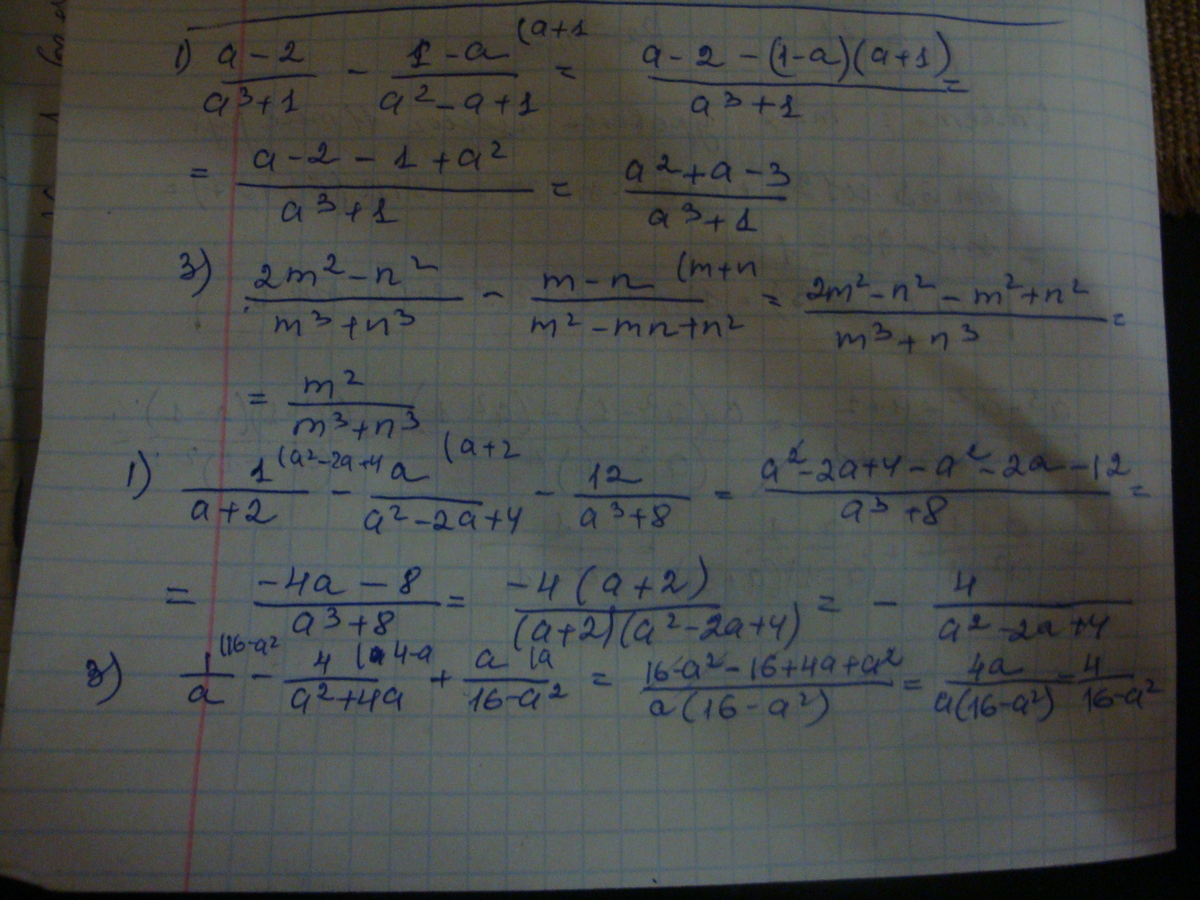 1) (a-2)/(a³+1) - (1-a)/(a²-a+1) (a+1 = (a-2-(1-a)(a+1))/(a³+1) =
= (a-2-1+a²)/(a³+1) = (a²+a-3)/(a³+1)
3) (2m²-n²)/(m³+n³) - (m-n)/(m²-mn+n²) (m+n = (2m²-n²-m²+n²)/(m³+n³) =
= m²/(m³+n³)
1) 1/(a+2) (a²-2a+4 - a/(a²-2a+4) (a+2 - 12/(a³+8) = (a²-2a+4-a²-2a-12)/(a³+8) =
= (-4a-8)/(a³+8) = -4(a+2)/((a+2)(a²-2a+4)) = - 4/(a²-2a+4)
3) 1/a (16-a² - 4/(a²+4a) (4-a + a/(16-a²) (a = (16-a²-16+4a+a²)/(a(16-a²)) = 4a/(a(16-a²)) = 4/(16-a²)